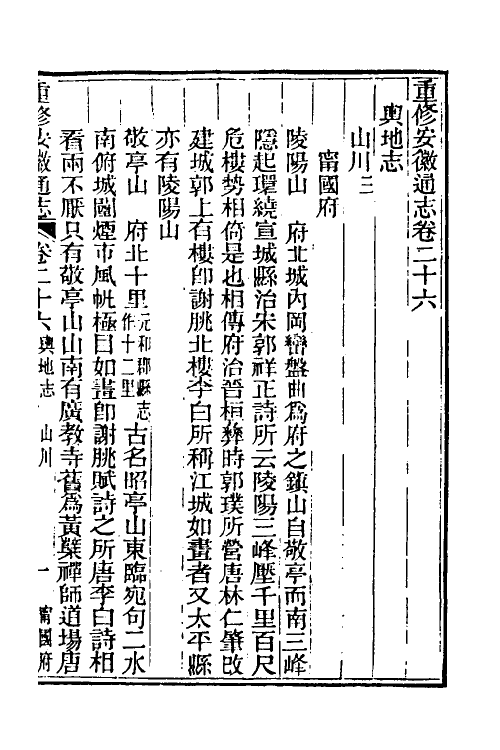 重修安徽通志卷二十六
輿地志
山川三
甯國府
陵陽山　府北城內岡巒盤曲爲府之鎭山自敬亭而南三峰
隱起環繞宣城縣治宋郭祥正詩所云陵陽三峰壓千里百尺
危樓勢相倚是也相傳府治晉桓彝時郭璞所營唐林仁肇改
建城郭上有樓卽謝朓北樓李白所稱江城如畫者又太平縣
亦有陵陽山
敬亭山　府北十里元和郡縣志作十二里古名昭亭山東臨宛句二水
南俯城闉煙市風帆極目如畫卽謝朓賦詩之所唐李白詩相
看兩不厭只有敬亭山山南有廣教寺舊爲黃蘗禪師道場唐
重修安徽通志　卷二十六輿地志　山川　一　甯國府